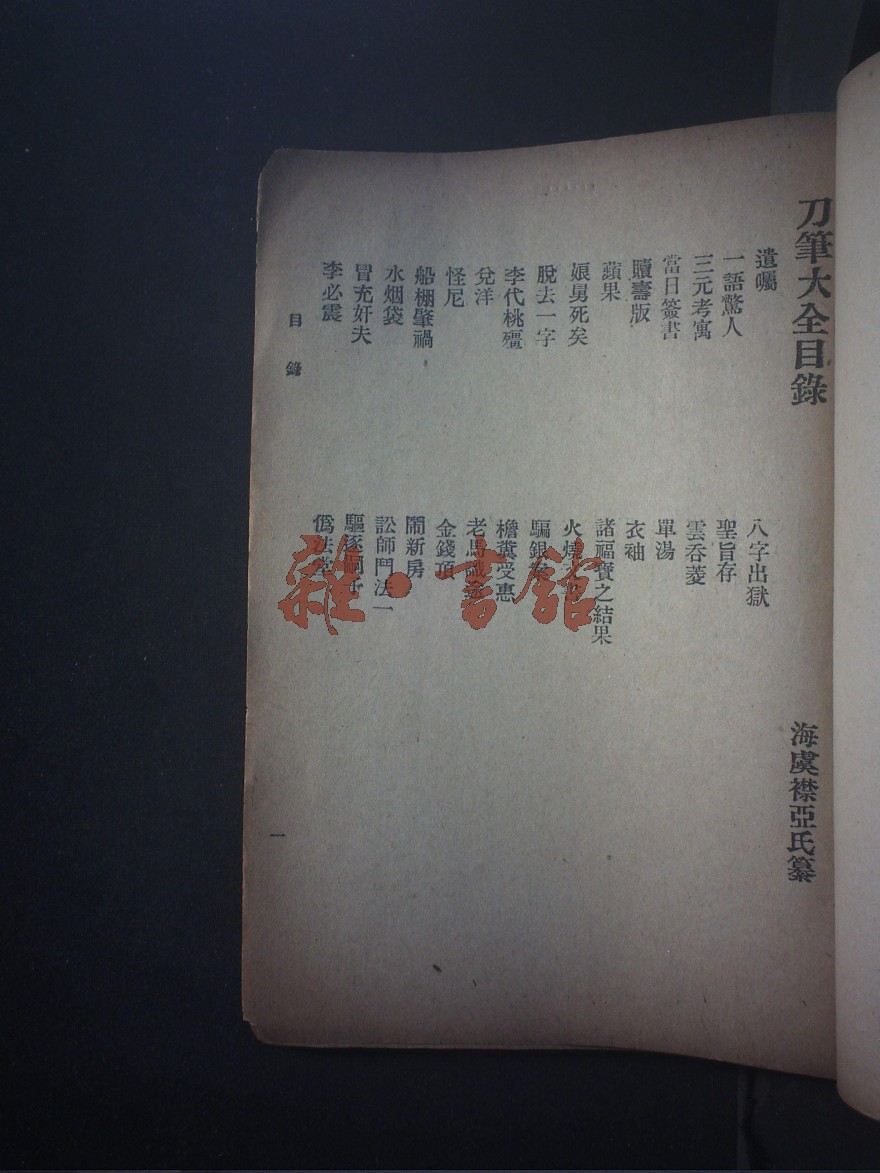 刀筆大全目錄
海虞襟亞氏纂
遺囑
一語驚人
三元考寓
當日簽書
贖壽版
蘋果
娘舅死矣
脫去一字
李代桃殭
兌洋
怪尼
船棚肇禍
水烟袋
冒充奸夫
李必震
八字出獄
聖旨存
雲吞菱
單湯
衣袖
諸福寶之結果
火燒
騙銀案
檐糞受惠
老馬識途
金錢項
鬧新房
訟師鬥法一
驅逐嗣子
僞法堂
目錄
一
雜·書館